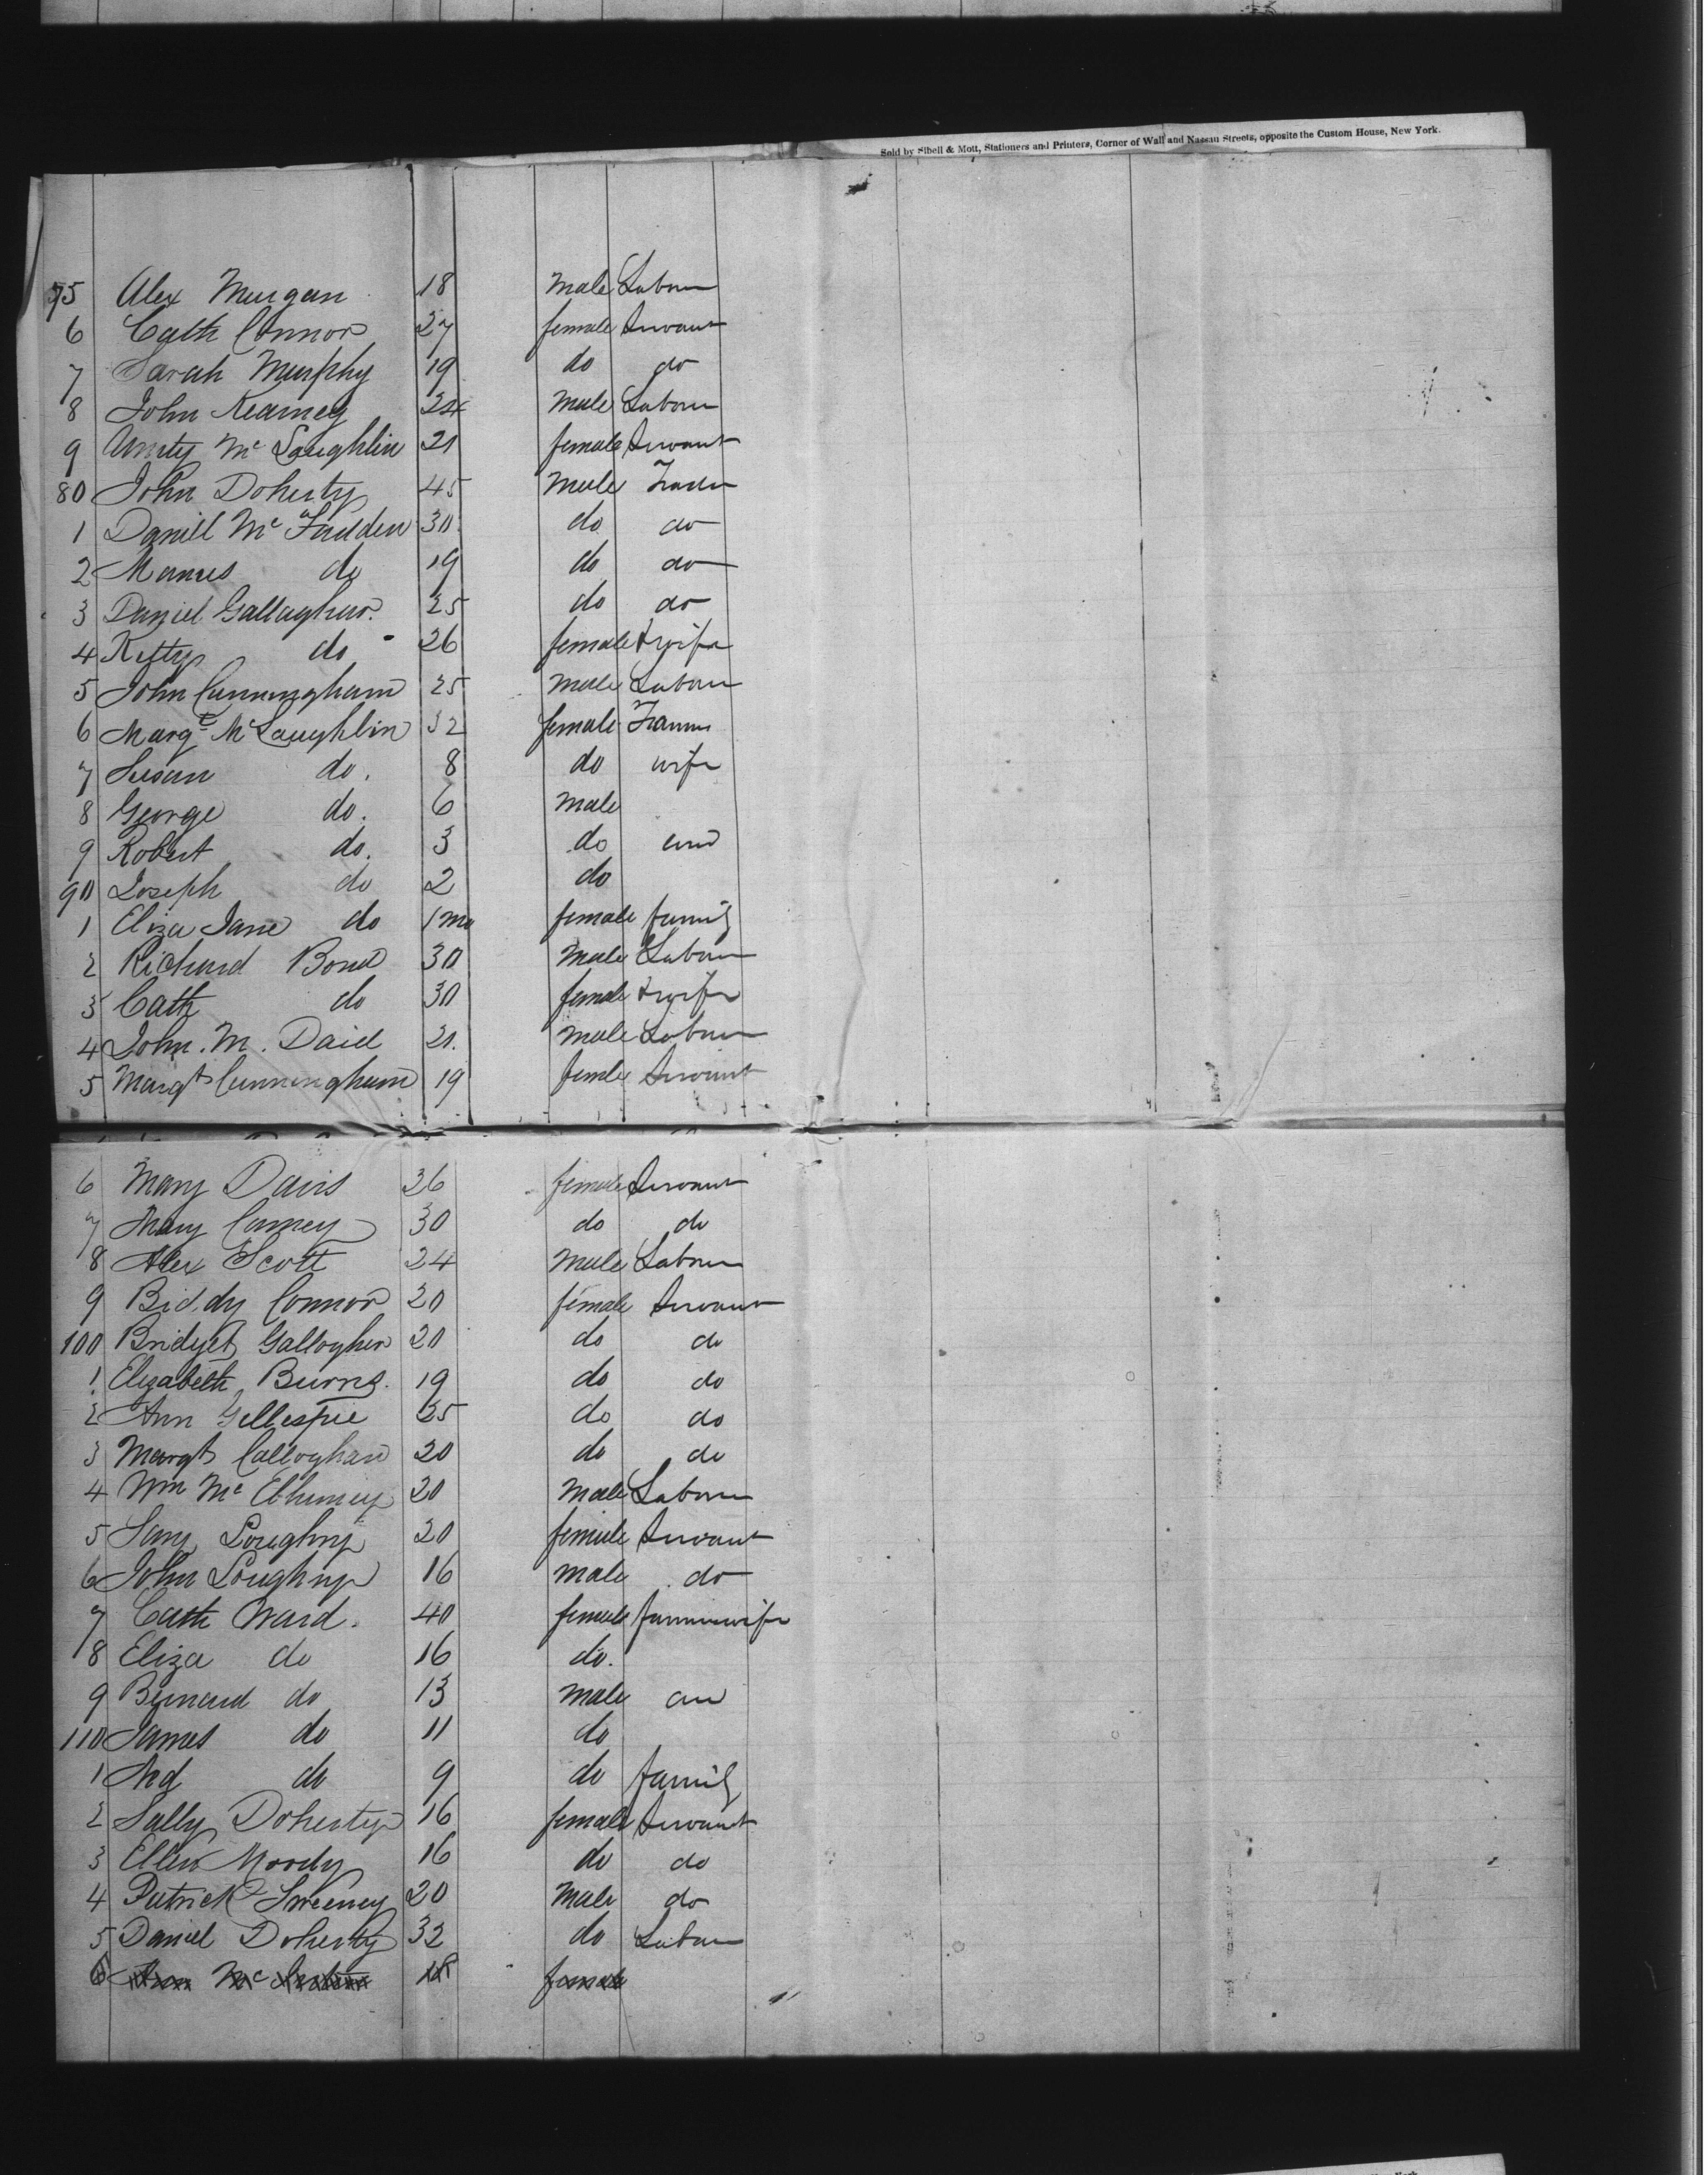 Sold by Sibell & Mott, Stationers and Printers, Corner of Wall and Nassau Streets, opposite the Custom House, New York.
75 Alex Morgan 18 Male Labour
6 Cath Connor 27 female Servant
7 Sarah Murphy 19 do do
8 John Kearney 24 Male Labour
9 Unity Mc Loughlin 21 female Servant
80 John Doherty 45 Male Trader
1 Daniel Mc Fadden 30 do do
2 Manus do 19 do do
3 Daniel Gallagher 25 do do
4 Kitty do 26 female & wife
5 John Cunningham 25 Male Labour
6 Margt McLaughlin 32 female Farmers
7 Susan do. 8 do wife
8 George do. 6 Male
9 Robert do. 3 do and
90 Joseph do 2 do
1 Eliza Jane do 1 mo female family
2 Richard Bond 30 Male Labour
3 Cath do 30 female & wife
4 John. M. Daid 21. Male Labour
5 Margt Cunningham 19 femle Servant
6 Mary Davis 26 female Servant
7 Mary 30 do do
8 Alex Scott 24 Male Labour
9 Biddy Connor 20 female Servant
100 Bridget Gallogher 20 do do
1 Elizabeth Burns. 19 do do
2 Ann Gillespie 25 do do
3 Margt Calloghan 20 do do
4 Wm Mc Elhinney 20 Male Labour
5 Loughry 20 female Servant
6 John Loughry 16 male do
7 Cath Ward. 40 female farmerswife
8 Eliza do 16 do.
9 Bernard do 13 male and
110 James do 11 do
1 Ned do 9 do family
2 Sally Doherty 16 female Servant
3 Ellen Moody 16 do do
4 Patrick Sweeney 20 Male do
5 Daniel Doherty 32 do Labour
6 Ann Mc 18 female